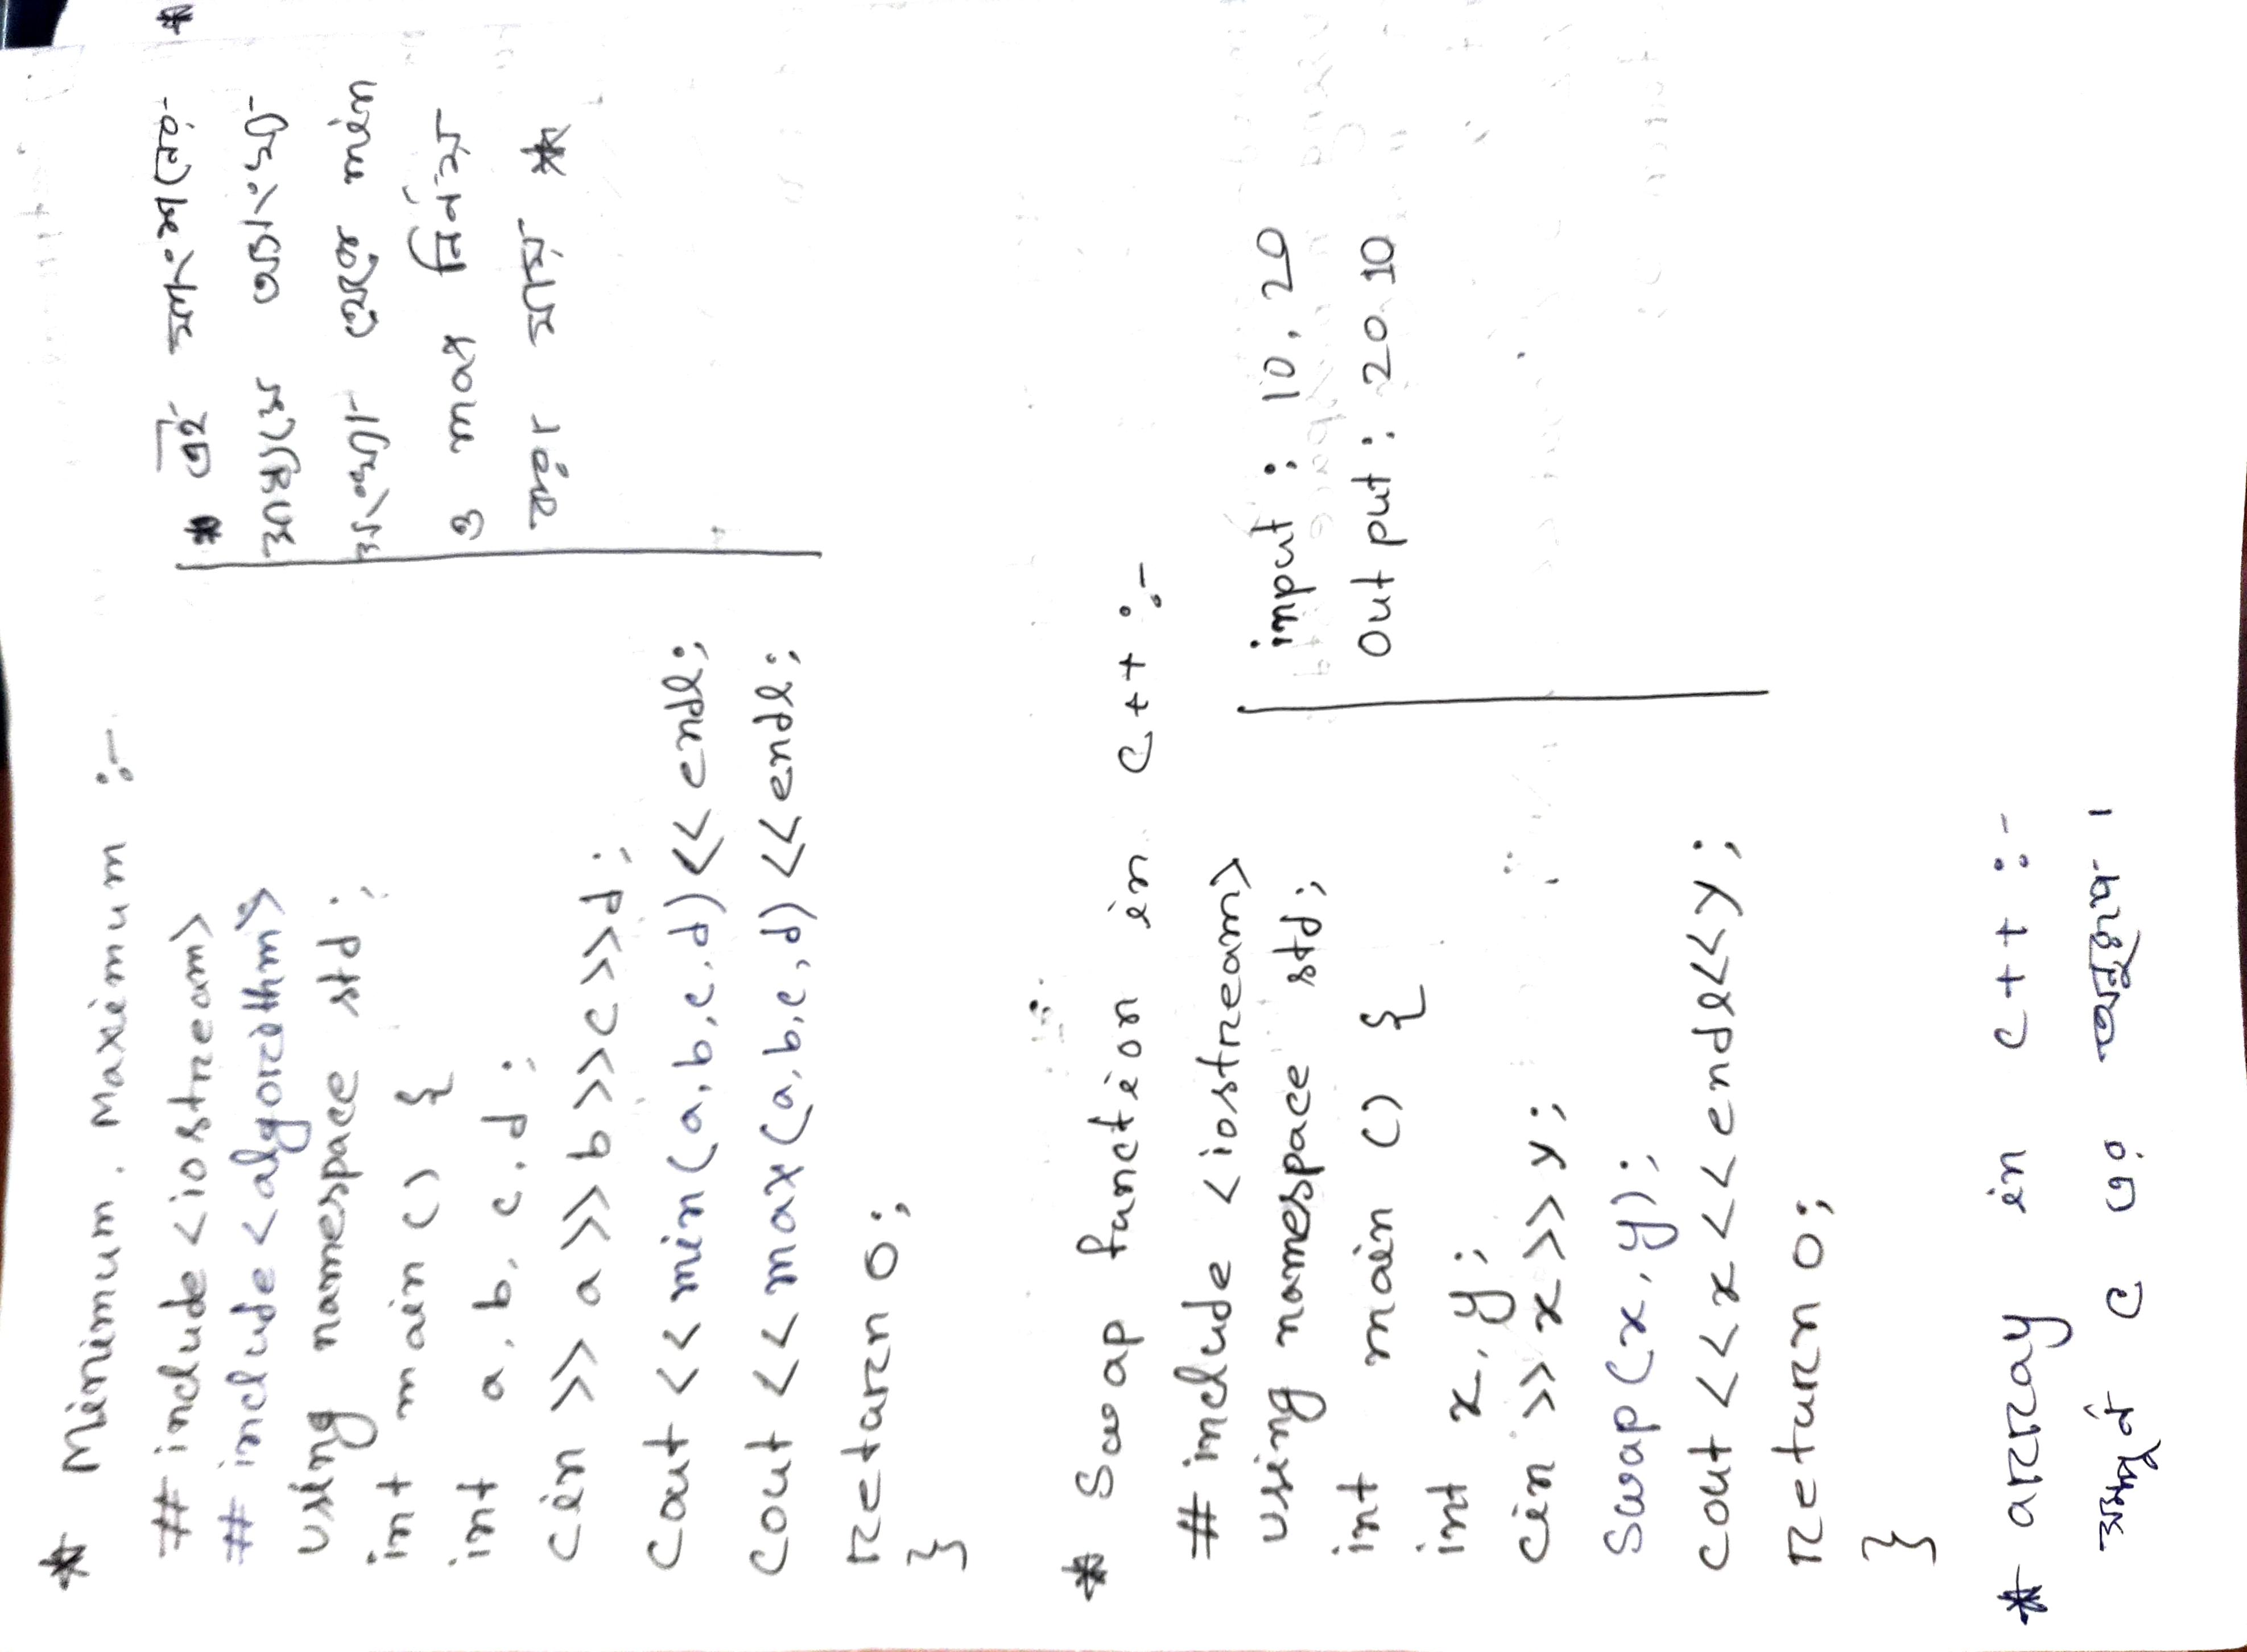 * Minimum, Maximum :-
# include <iostream>
# include <algorithm>
using namespace std;
int main () {
int a, b, c, d;
cin >> a >> b >> c >> d;
cout << min(a,b,c,d) << endl;
cout << max(a,b,c,d) << endl;
return 0;
}
* এই ফাংশনের *
মাধ্যমে অসংখ্য
সংখ্যা থেকে min
ও max নির্নয়
করা যায় *
* Swap function in c++ :-
# include <iostream>
using namespace std;
int main () {
int x, y;
cin >> x >> y;
swap (x, y);
cout << x << endl << y;
return 0;
}
input : 10, 20
Output : 20, 10
* array in c++ :-
সম্পূর্ন C এর অনুরূপ ।